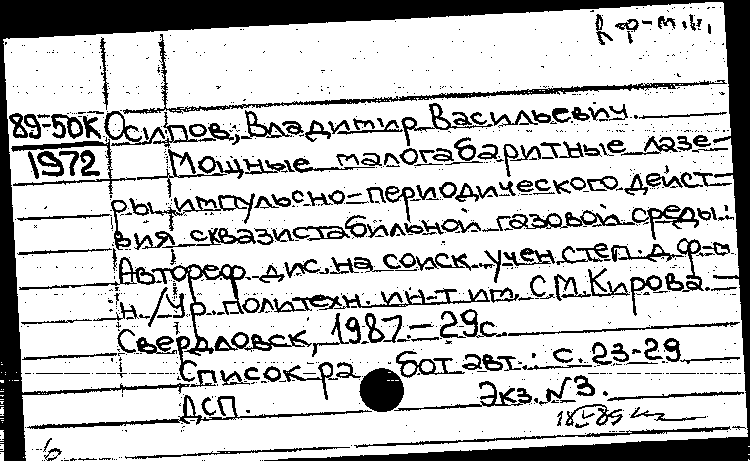 к ф-м.н.
89-50К Осипов, Владимир Васильевич.
1972 Мощные малогабаритные лазе-
ры импульсно-периодического дейст-
вия сквазистабильной газовой среды:
Автореф. дис. на соиск. учен. степ. д. ф-м
н. /Ур. политехн. ин-т им. С.М. Кирова. —
Свердловск, 1987. — 29с.
Список ра бот авт.: с. 23-29
ДСП. Экз. N3.
6